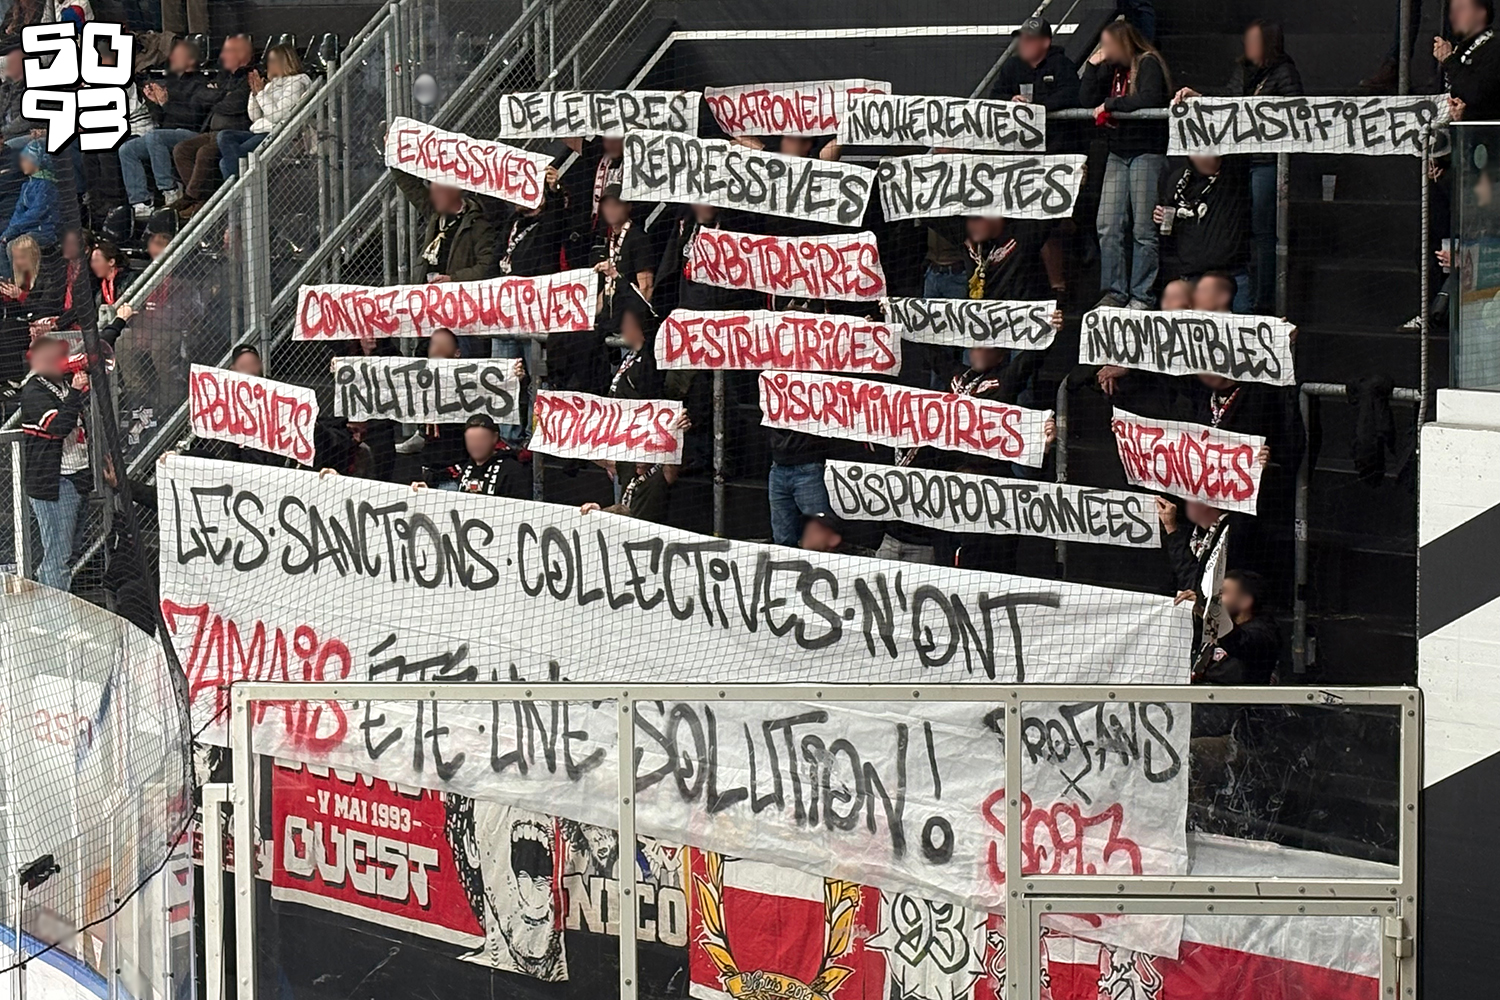 SO
93
DÉLÉTÈRES
IRRATIONELLES
INCOHÉRENTES
INJUSTIFIÉES
EXCESSIVES
RÉPRESSIVES
INJUSTES
ARBITRAIRES
CONTRE-PRODUCTIVES
DESTRUCTRICES
INSENSÉES
INCOMPATIBLES
ABUSIVES
INUTILES
RIDICULES
DISCRIMINATOIRES
INFONDÉES
DISPROPORTIONNÉES
LES·SANCTIONS·COLLECTIVES·N'ONT
JAMAIS·ÉTÉ·UNE·SOLUTION!
PROFANS
X
SO93
-V MAI 1993-
OUEST
NICO
93
Depuis 2014